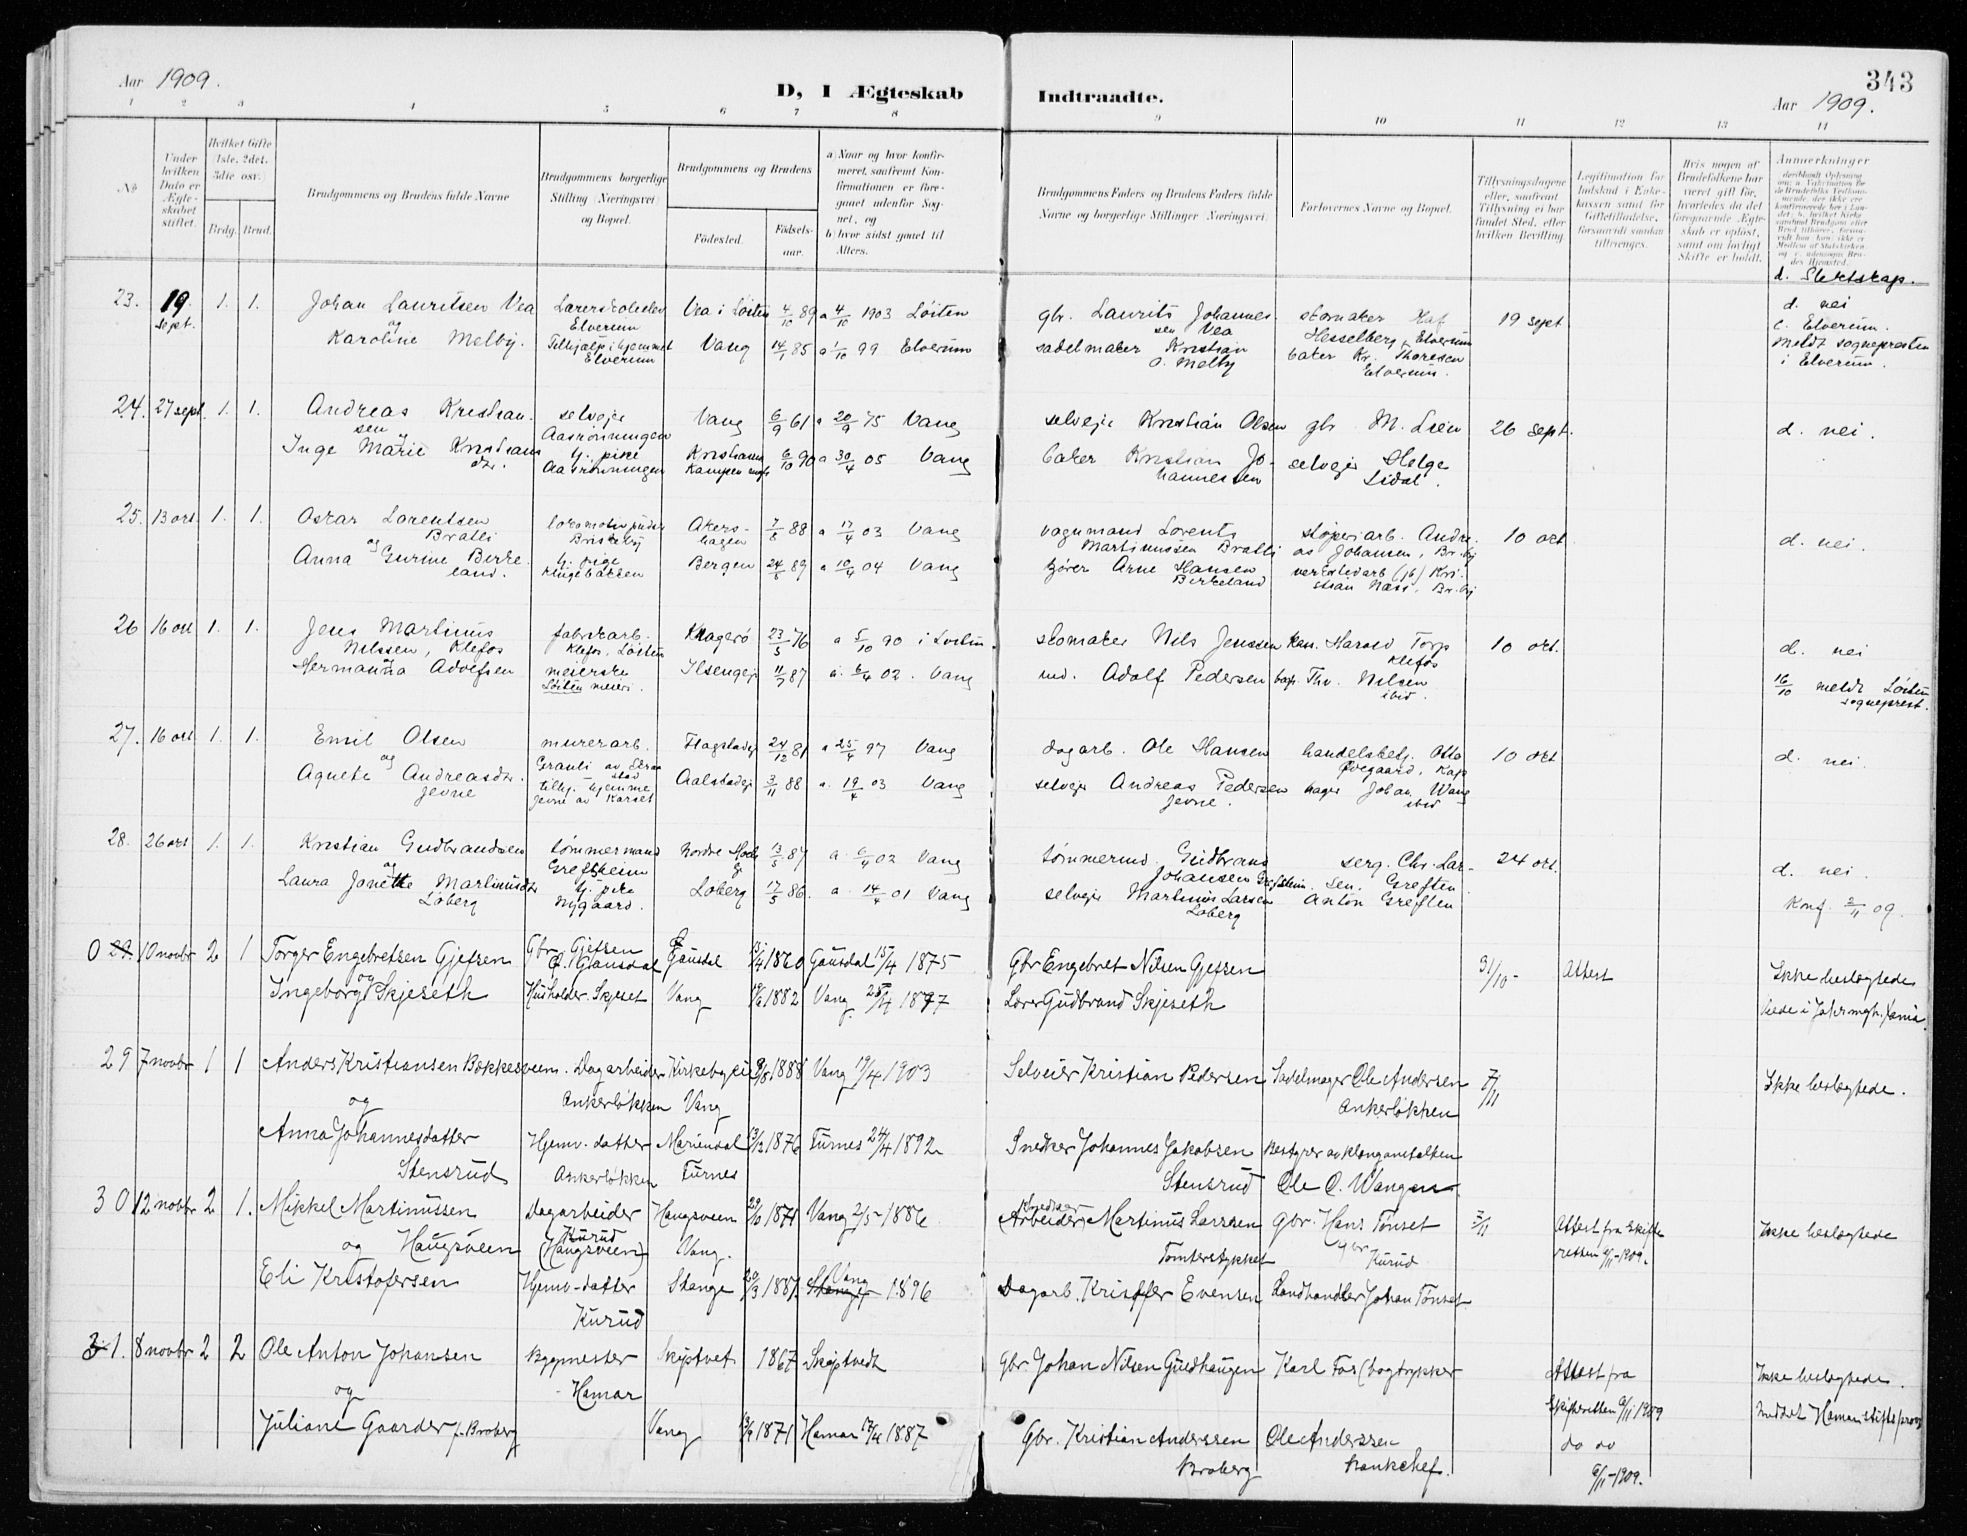 Aar 1909.
D, I Ægteskab Indtraadte.
343
Aar 1909.
1 2 3 4 5 6 7 8 9 10 11 12 13 14
No
Under hvilken Dato er Ægteskabet stiftet.
Hvilket Gifte (1ste, 2det, 3die osv.)
Brdg. Brud.
Brudgommens og Brudens fulde Navne
Brudgommens borgerlige Stilling (Næringsvei) og Bopæl.
Brudgommens og Brudens
Fødested.
Fødselsaar.
a) Naar og hvor konfirmeret, saafremt Konfirmationen er foregaaet udenfor Sognet, og
b) hvor sidst gaaet til Alters.
Brudgommens Faders og Brudens Faders fulde Navne og borgerlige Stillinger (Næringsvei)
Forlovernes Navne og Bopæl.
Tillysningsdagene eller, saafremt Tillysning ei har fundet Sted, efter hvilken Bevilling
Legitimation for Indskud i Enkekassen samt for Giftetilladelse, forsaavidt saadan tiltrænges.
Hvis nogen af Brudefolkene har været gift før, hvorledes da det foregaaende Ægteskab er opløst, samt om lovligt Skifte er holdt.
Anmærkninger
d. Slektskap.
23. 19 sept. 1. 1. Johan Lauritsen Vea Lærerskoleelev Elverum Vea i Løiten 4/10 89 a 4/10 1903 Løiten gbr. Laurits Johannessen Vea skomaker Hesselberg, Elverum 19 sept d. nei
og c. Elverum.
Karoline Melby. Tilhjælp i hjemmet Elverum Vang 14/1 85 a 1/10 99 Elverum sadelmaker Kristian O. Melby baker Kr. Thoresen Elverum. meldt sognepresten i Elverum.
24. 27 sept. 1. 1. Andreas Kristiansen selveje Aasrønningen Vang 6/9 61 a 20/9 75 Vang selveje Kristian Olsen gbr M. Lien 26 sept. d. nei.
Inge Marie Kristiansdtr. tj. pike Aasrønningen Kristiania 6/10 90 a 30/4 05 Vang baker Kristian Johannessen selvejer Helge Lidal.
25. 13 okt. 1. 1. Oskar Lorentsen Bratli lokomotivpudser Akershagen 7/8 88 a 17/4 03 Vang vognmand Lorents Martinussen Bratli støperiarb. Andreas Johansen, Br.by 10 okt d. nei.
og
Anna Gurine Birkeland. tj. pige Klingebakken Bergen 24/5 89 a 10/4 04 Vang kjører Arne Hansen Birkeland verkstedarb (jb) Kristian Næss, Br.by
26 16 okt 1. 1. Jens Martinus Nilssen, Klefos fabrikarb. Klefos, Løiten Kragerø 23/5 76 a 5/10 90 i Løiten. skomaker Nils Jenssen Harald Torp Klefos 10 okt. d. nei
Hermanna Adolfsen meierske Løiten meieri. Ilsengeje 11/7 87 a. 6/4 02. Vang Adolf Pedersen Thv. Nilsen ibid. 16/10 meldt Løiten sogneprest.
27. 16 okt 1. 1. Emil Olsen murerarb. Flagstadeje 24/12 81 a 25/4 97 Vang dagarb. Ole Hansen handelsbetj. Otto 10 okt d. nei.
og
Agnete Andreasdtr. Jevne tilhj. hjemme Jevne av Karset Aalstadeje 3/11 88 a. 19/4 03 Vang selveje Andreas Pedersen Jevne. Johan Wang ibid
28. 26 okt 1. 1. Kristian Gudbrandsen tømmermand Grefsheim 13/5 87 a 6/4 02 Vang tømmermd. Gudbrand Johansen Grefsheim. serg. Chr. Larsen. Greften 24 okt. d. nei.
og
Laura Jonette Martinusdtr Løberg tj. pike Nygaard. Løberg 17/5 86. a. 14/4 01 Vang selveje Martinus Larsen Løberg Anton Greften Konf. 2/11 09.
0 29. 10 novbr 2 1 Torger Engebretsen Gjetsen Gbr. Gjetsen Ø. Gausdal Gausdal 13/4 1860 Gausdal 15/4 1875 Gbr Engebret Nilsen Gjetsen 31/10 - Attest Ikke beslegtede
og
Ingeborg Skjeseth Husholder. Skjeset Vang 1882 Vang 25/4 1897 Lærer Gudbrand Skjeseth
29 7 novbr 1 1 Anders Kristiansen Bækkesveen. Dagarbeider Ankerløkken Kirkebyeie Vang 1888 Vang 19/4 1903 Selveier Kristian Pedersen Sadelmager Ole Andersen Ankerløkken 7/11 Ikke beslegtede.
og
Anna Johannesdatter Stensrud Hjemv. datter Ankerløkken Mariendal Furnes 13/12 1876 Furnes 24/4 1892 Snedker Johannes Jakobsen Stensrud Bestyrer av Klonganstalten Ole O. Wangen
30 12 novbr 2 1. Mikkel Martinussen Haugsveen Dagarbeider Kurud (Haugsveen) Haugsveen Vang. 1871 Vang 2/5 - 1886 Arbeider Martinus Larsen Tomterstykket Gbr. Hans Tønset gbr Kurud 7/11 Attest fra Skifteretten 6/11-1909. Ikke beslegtede
og
Eli Kristofersen Hjemv. datter Kurud Stange 20/3 1881. Stange Vang 1896 Dagarb. Kristffer Evensen Landhandler Johan Tønset
31. 8 novbr 2 2 Ole Anton Johansen Bygmester Hamar Skiptvet 1867 Skiptvedt Gbr Johan Nilsen Guldhaugen Karl Fos (bogtrykker Attest fra Skifteretten 6/11 1909 Ikke beslegtede.
og
Juliane Gaarder f. Broberg Vang 13/9 1871 Hamar 17/4 1887 Gbr. Kristian Anderssen Broberg Ole Anderssen Bankchef. do do 6/11-1909.